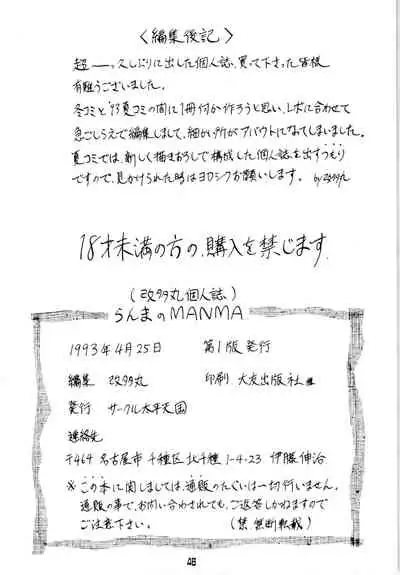 〈編集後記〉
超──っ久しぶりに出した個人誌、買って下さった皆様
有難うございました。
冬コミと'93夏コミの間に1冊何か作ろうと思い、レボに合わせて
急ごしらえで編集しまして、細かい所がアバウトになってしまいました。
夏コミでは、新しく描きおろしで構成した個人誌を出すつもり
ですので、見かけられた時はヨロシクお願いします。by改多丸
18才未満の方の、購入を禁じます.
(改多丸個人誌)
らんまのMANMA
1993年4月25日 第1版発行
編集 改多丸 印刷 大友出版社
発行 サークル太平天国
連絡先
〒464 名古屋市 千種区 北千種 1-4-23 伊藤伸治
※この本に関しましては、通販のたぐいは一切行いません。
通販の事で、お問い合わされても、ご返答しかねますので
ご注意下さい。 (禁 無断転載)
48